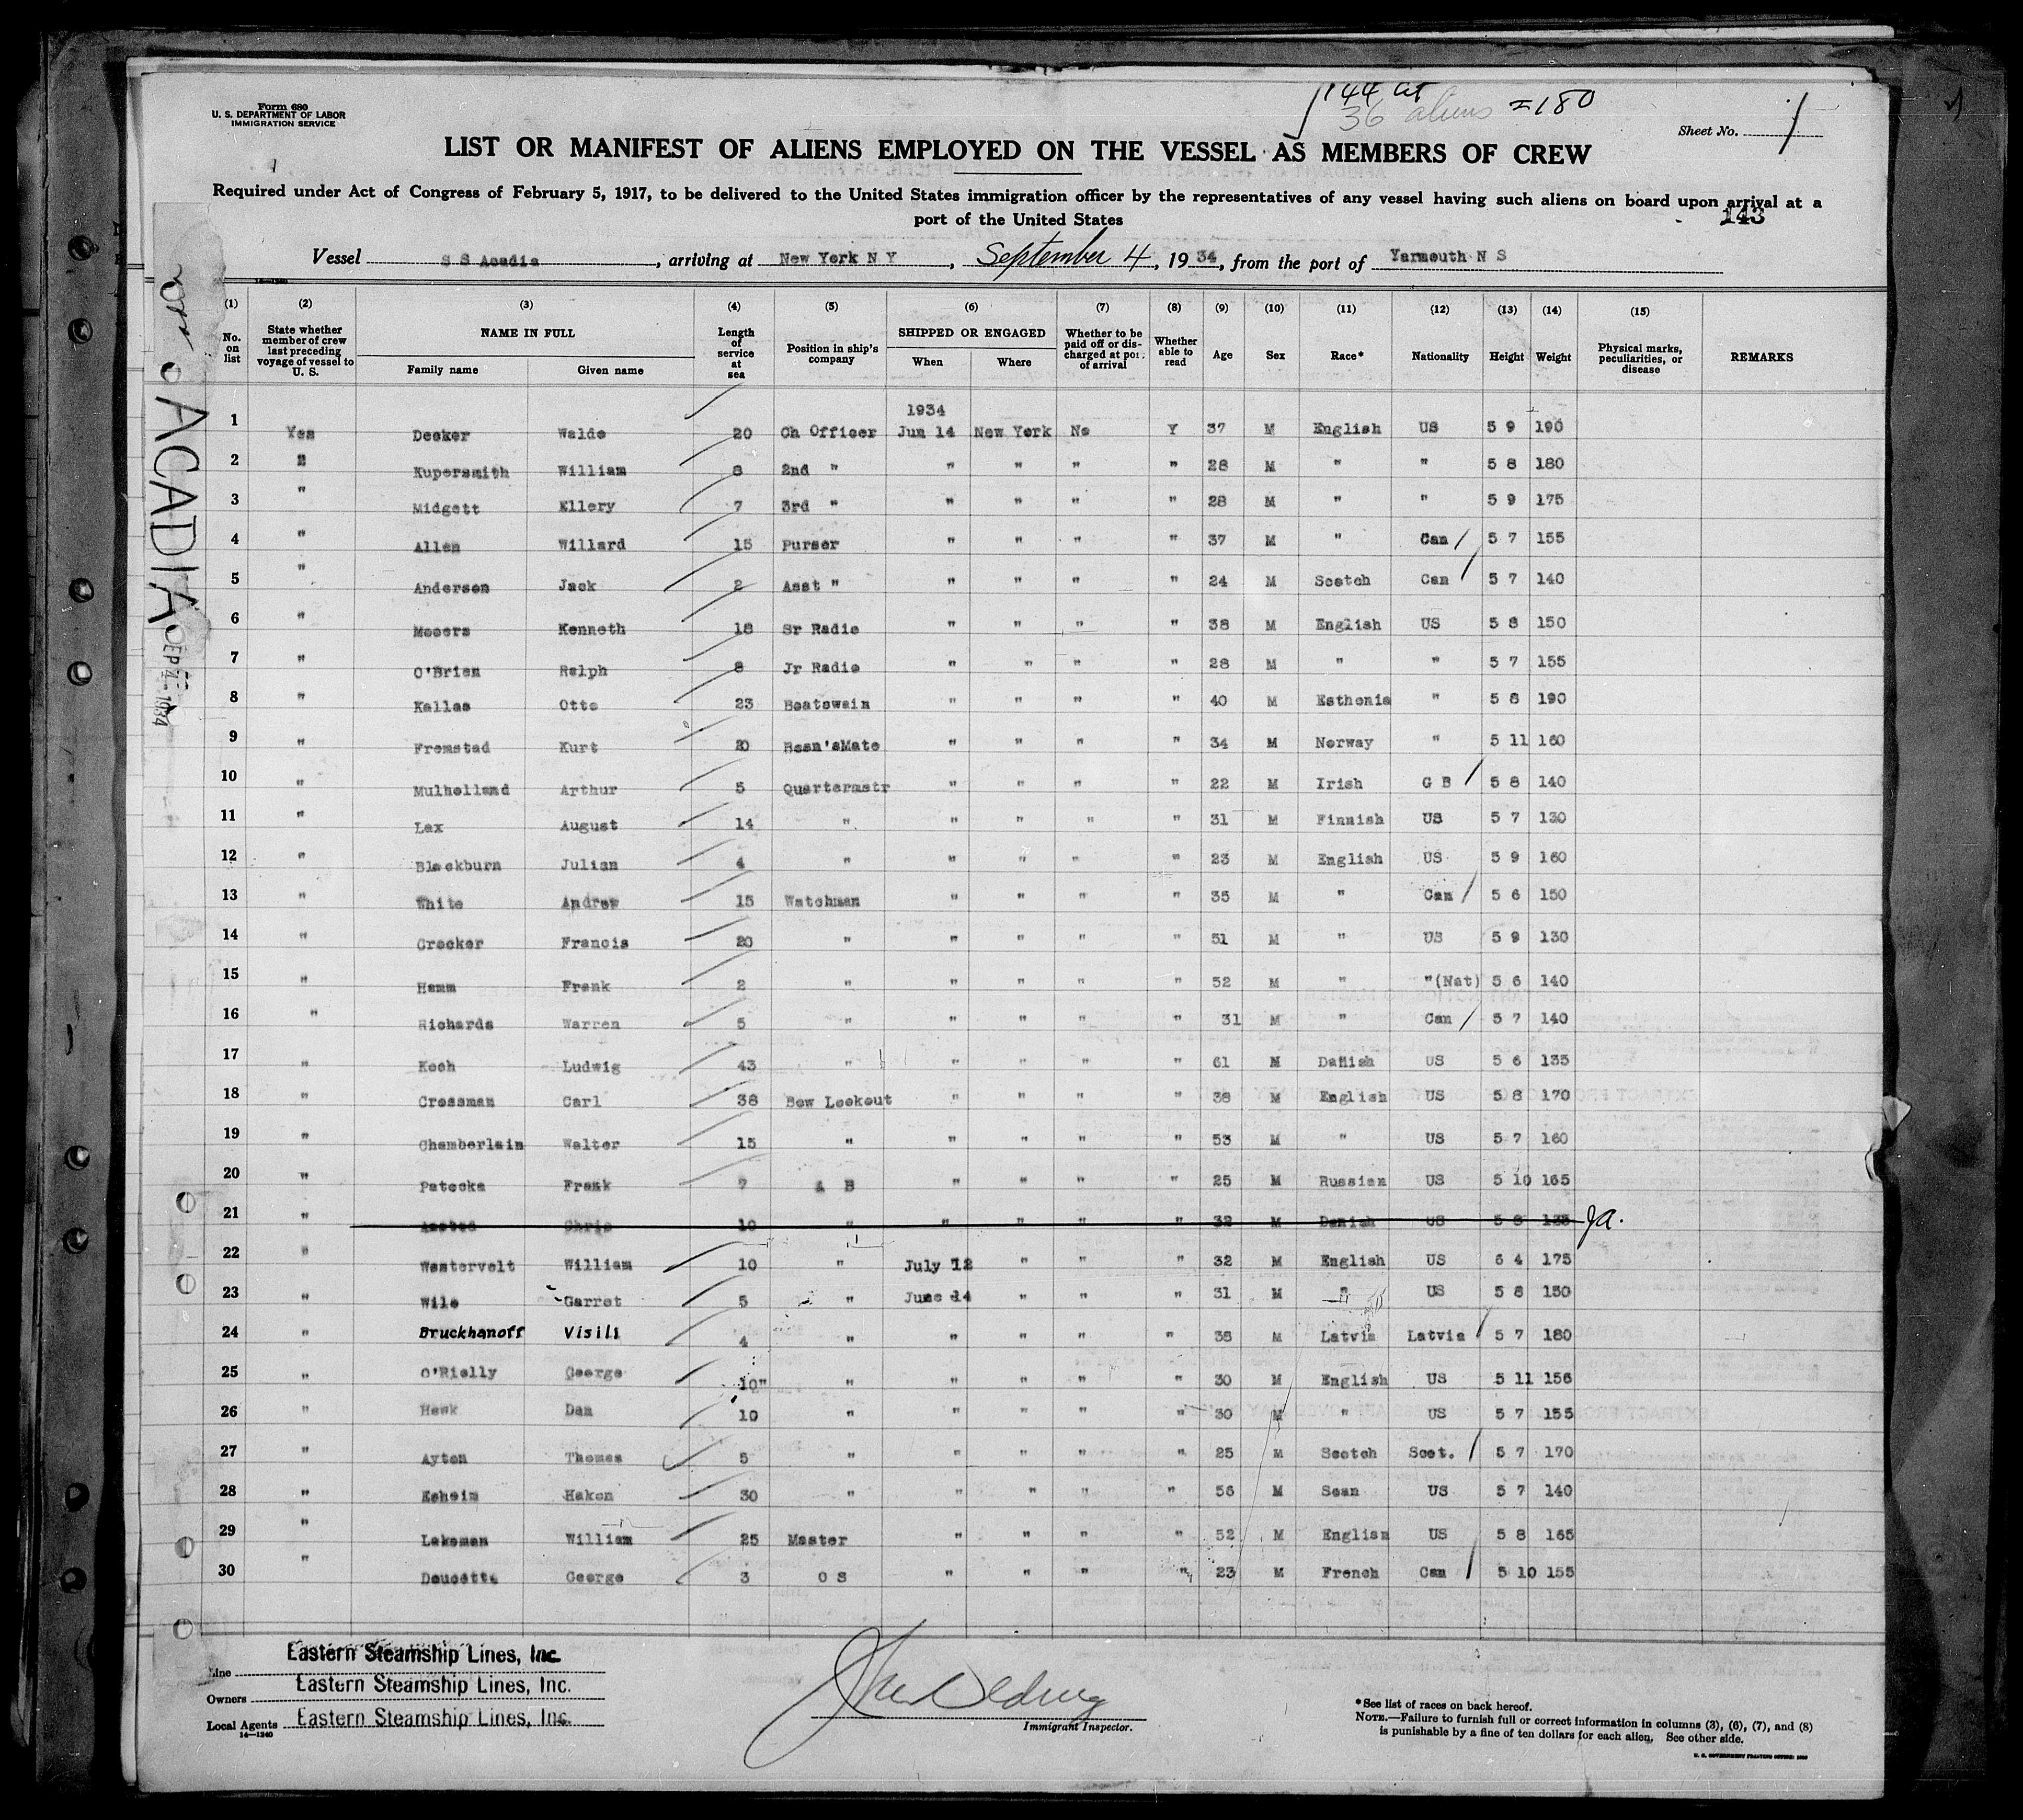 Form 680
U. S. DEPARTMENT OF LABOR
IMMIGRATION SERVICE
144 at
36 aliens =180
Sheet No. 1
LIST OR MANIFEST OF ALIENS EMPLOYED ON THE VESSEL AS MEMBERS OF CREW
Required under Act of Congress of February 5, 1917, to be delivered to the United States immigration officer by the representatives of any vessel having such aliens on board upon arrival at a
port of the United States
143
Vessel S S Acadia, arriving at New York N Y, September 4, 1934, from the port of Yarmouth N S
14—1240
(1) (2) (3) (4) (5) (6) (7) (8) (9) (10) (11) (12) (13) (14) (15)
No. on list
State whether member of crew last preceding voyage of vessel to U. S.
NAME IN FULL
Family name Given name
Length of service at sea
Position in ship's company
SHIPPED OR ENGAGED
When Where
Whether to be paid off or discharged at port of arrival
Whether able to read
Age Sex Race* Nationality Height Weight
Physical marks, peculiarities, or disease
REMARKS
1934
1 Yes Decker Waldo 20 Ch Officer Jun 14 New York No Y 37 M English US 5 9 190
2 " Kupersmith William 8 2nd " " " " " 28 M " " 5 8 180
3 " Midgett Ellery 7 3rd " " " " " 28 M " " 5 9 175
4 " Allen Willard 15 Purser " " " " 37 M " Can 5 7 155
5 " Anderson Jack 2 Asst " " " " " 24 M Scotch Can 5 7 140
6 " Mooers Kenneth 18 Sr Radio " " " " 38 M English US 5 8 150
7 " O'Brien Ralph 8 Jr Radio " " " " 28 M " " 5 7 155
8 " Kallas Otto 23 Boatswain " " " " 40 M Esthonia " 5 8 190
9 " Fromstad Kurt 20 Bosn'sMate " " " " 34 M Norway " 5 11 160
10 " Mulholland Arthur 5 Quartermstr " " " " 22 M Irish G B 5 8 140
11 " Lax August 14 " " " " " 31 M Finnish US 5 7 130
12 " Blackburn Julian 4 " " " " " 23 M English US 5 9 160
13 " White Andrew 15 Watchman " " " " 35 M " Can 5 6 150
14 " Crocker Francis 20 " " " " " 51 M " US 5 9 130
15 " Hamm Frank 2 " " " " " 52 M " "(Nat) 5 6 140
16 " Richards Warren 5 " " " " " 31 M " Can 5 7 140
17 " Koch Ludwig 43 " " " " " 61 M Danish US 5 6 135
18 " Crossman Carl 38 Bow Lookout " " " " 38 M English US 5 8 170
19 " Chamberlain Walter 15 " " " " " 53 M " US 5 7 160
20 " Patocka Frank 7 A B " " " " 25 M Russian US 5 10 165
21 " Chris 10 " " " " " 32 M Danish US 5 8 135 Ja.
22 " Westervelt William 10 " July 12 " " " 32 M English US 6 4 175
23 " Wile Garret 5 " June 14 " " " 31 M " US 5 8 150
24 " Bruckhanoff Visili 4 " " " " " 38 M Latvia Latvia 5 7 180
25 " O'Rielly George 10" " " " " " 30 M English US 5 11 156
26 " Hawk Dan 10 " " " " " 30 M " US 5 7 155
27 " Ayton Thomas 5 " " " " " 25 M Scotch Scot. 5 7 170
28 " Esheim Hakon 30 " " " " " 56 M Scan US 5 7 140
29 " Lakeman William 25 Master " " " " 52 M English US 5 8 165
30 " Doucette George 3 O S " " " " 23 M French Can 5 10 155
ACADIA
SEP 4 - 1934
Line Eastern Steamship Lines, Inc.
Owners Eastern Steamship Lines, Inc.
Local Agents Eastern Steamship Lines, Inc.
14—1240
Immigrant Inspector.
*See list of races on back hereof.
NOTE.—Failure to furnish full or correct information in columns (3), (6), (7), and (8)
is punishable by a fine of ten dollars for each alien. See other side.